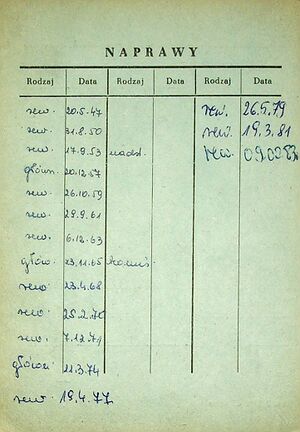 NAPRAWY
Rodzaj Data Rodzaj Data Rodzaj Data
rew. 20.5.47 rew. 26.5.79
rew. 31.8.50 rew. 19.3.81
rew. 17.9.53 nadsł. rew.
główn. 20.12.57
rew. 26.10.59
rew. 29.9.61
rew. 6.12.63
głów. 23.11.65
rew 23.4.68
rew. 25.2.70
rew. 7.12.71
główn 11.3.74
rew. 19.4.77.